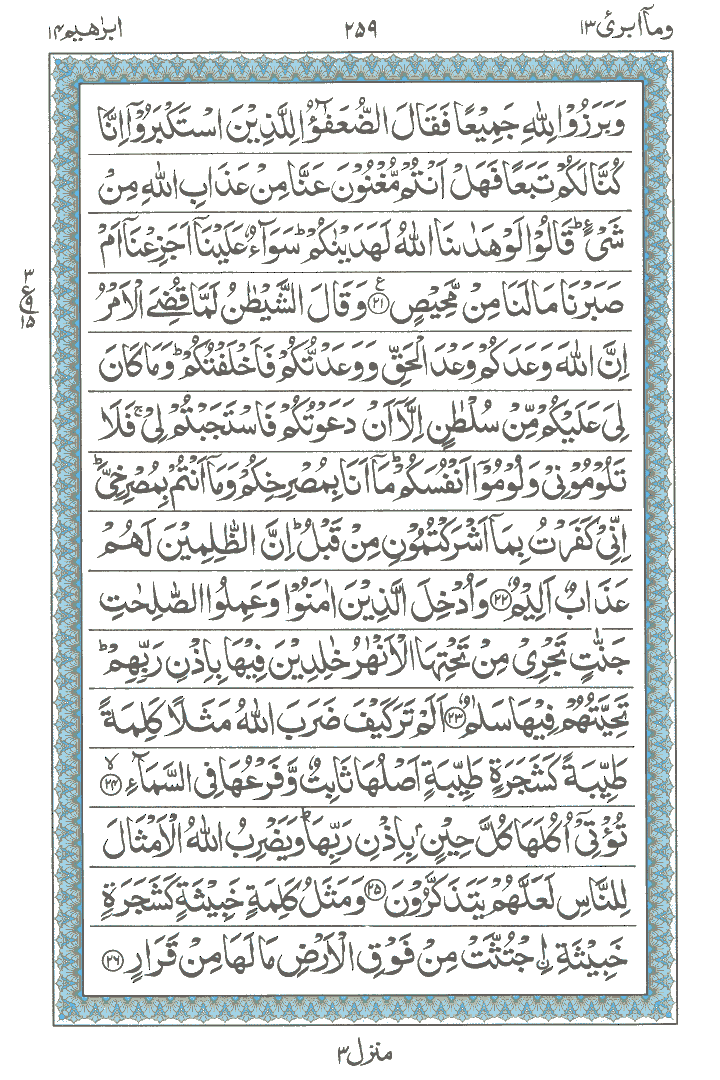 ومآ ابرئ ١٣ ٢٥٩ ابرٰهيم ١٤
وَبَرَزُوْا لِلّٰهِ جَمِيْعًا فَقَالَ الضُّعَفٰٓؤُا لِلَّذِيْنَ اسْتَكْبَرُوْۤا اِنَّا
كُنَّا لَكُمْ تَبَعًا فَهَلْ اَنْتُمْ مُّغْنُوْنَ عَنَّا مِنْ عَذَابِ اللّٰهِ مِنْ
شَیْءٍ ؕ قَالُوْا لَوْ هَدٰىنَا اللّٰهُ لَهَدَيْنٰكُمْ ؕ سَوَآءٌ عَلَيْنَاۤ اَجَزِعْنَاۤ اَمْ
صَبَرْنَا مَا لَنَا مِنْ مَّحِيْصٍ ﴿۲۱﴾ ع وَقَالَ الشَّيْطٰنُ لَمَّا قُضِیَ الْاَمْرُ
اِنَّ اللّٰهَ وَعَدَكُمْ وَعْدَ الْحَقِّ وَوَعَدْتُّكُمْ فَاَخْلَفْتُكُمْ ؕ وَمَا كَانَ
لِیَ عَلَيْكُمْ مِّنْ سُلْطٰنٍ اِلَّاۤ اَنْ دَعَوْتُكُمْ فَاسْتَجَبْتُمْ لِیْ ۚ فَلَا
تَلُوْمُوْنِیْ وَلُوْمُوْۤا اَنْفُسَكُمْ ؕ مَاۤ اَنَا بِمُصْرِخِكُمْ وَمَاۤ اَنْتُمْ بِمُصْرِخِیَّ ؕ
اِنِّیْ كَفَرْتُ بِمَاۤ اَشْرَكْتُمُوْنِ مِنْ قَبْلُ ؕ اِنَّ الظّٰلِمِيْنَ لَهُمْ
عَذَابٌ اَلِيْمٌ ﴿۲۲﴾ وَاُدْخِلَ الَّذِيْنَ اٰمَنُوْا وَعَمِلُوا الصّٰلِحٰتِ
جَنّٰتٍ تَجْرِیْ مِنْ تَحْتِهَا الْاَنْهٰرُ خٰلِدِيْنَ فِيْهَا بِاِذْنِ رَبِّهِمْ ؕ
تَحِيَّتُهُمْ فِيْهَا سَلٰمٌ ﴿۲۳﴾ اَلَمْ تَرَ كَيْفَ ضَرَبَ اللّٰهُ مَثَلًا كَلِمَةً
طَيِّبَةً كَشَجَرَةٍ طَيِّبَةٍ اَصْلُهَا ثَابِتٌ وَّفَرْعُهَا فِی السَّمَآءِ ﴿۲۴﴾ لا
تُؤْتِیْۤ اُكُلَهَا كُلَّ حِيْنٍۭ بِاِذْنِ رَبِّهَا ؕ وَيَضْرِبُ اللّٰهُ الْاَمْثَالَ
لِلنَّاسِ لَعَلَّهُمْ يَتَذَكَّرُوْنَ ﴿۲۵﴾ وَمَثَلُ كَلِمَةٍ خَبِيْثَةٍ كَشَجَرَةٍ
خَبِيْثَةِ ِۨاجْتُثَّتْ مِنْ فَوْقِ الْاَرْضِ مَا لَهَا مِنْ قَرَارٍ ﴿۲۶﴾
٣
ع ٩
١٥
منزل ٣